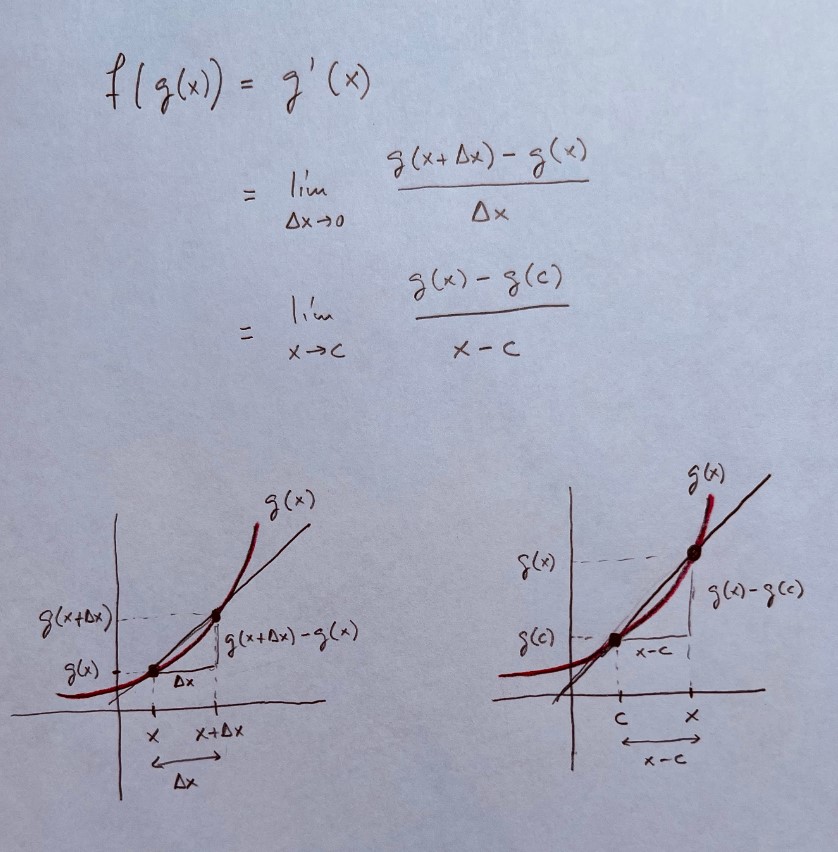 f(g(x)) = g'(x)
= lim Δx→0 g(x+Δx) − g(x) / Δx
= lim x→c g(x) − g(c) / x − c
g(x)
g(x+Δx)
g(x+Δx) − g(x)
g(x)
Δx
x x+Δx
Δx
g(x)
g(x)
g(x) − g(c)
g(c)
x−c
c x
x−c